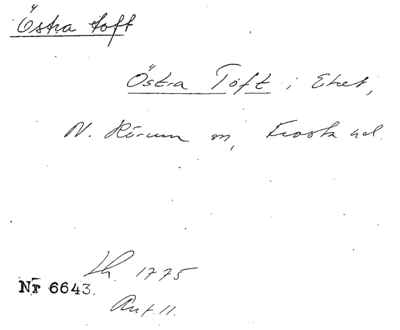 Östra toft
Östra Toft i Eket,
N. Rörum sn, Frosta hd.
Lh. 1775
Nr 6643.
Akt 11.